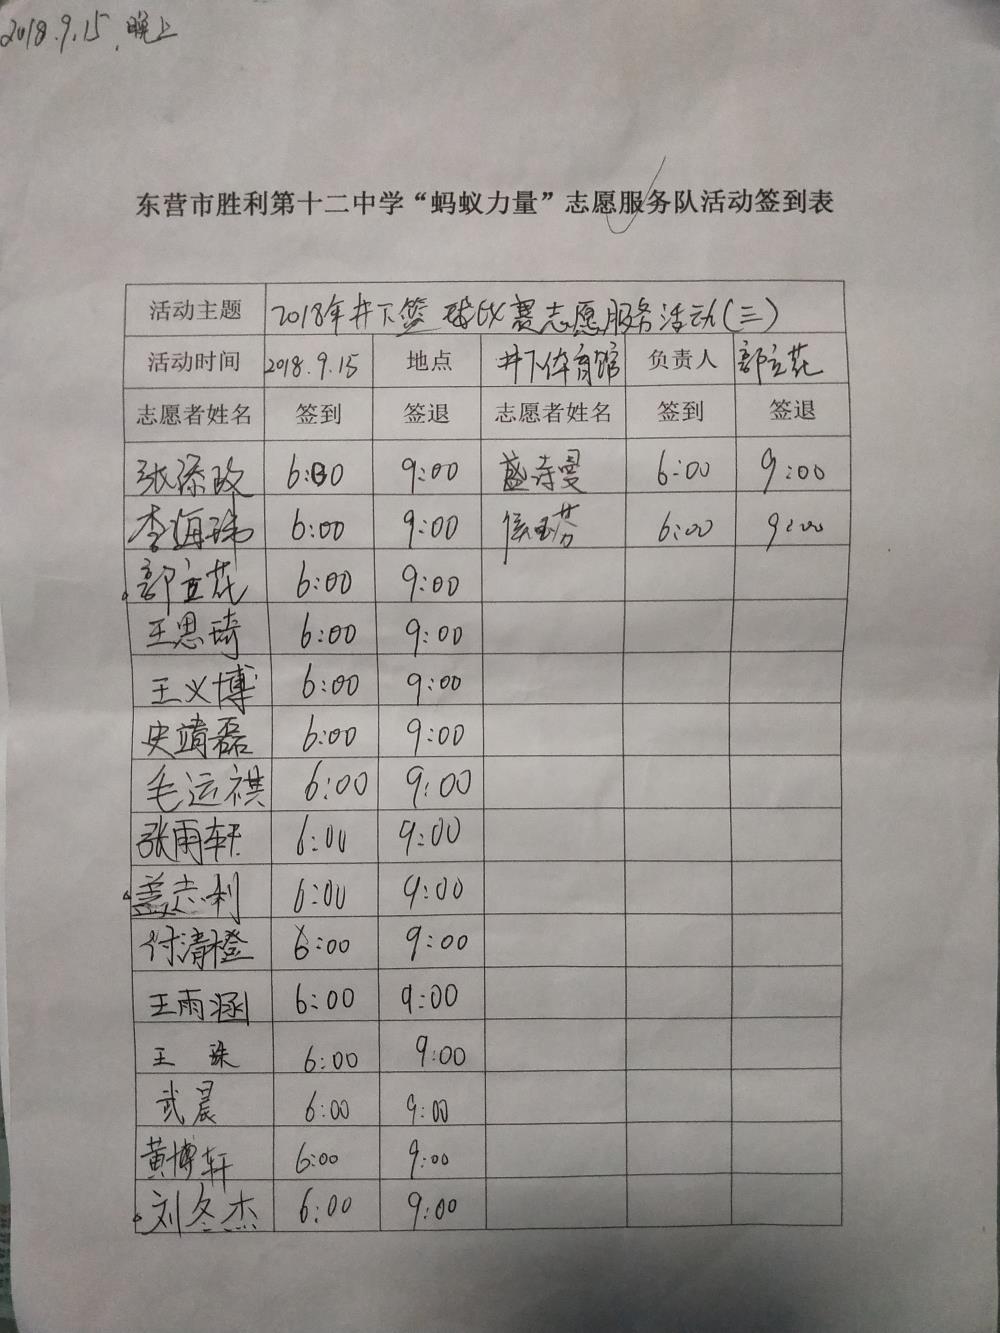 2018.9.15.晚上
东营市胜利第十二中学“蚂蚁力量”志愿服务队活动签到表
活动主题 2018年井下篮球比赛志愿服务活动(三)
活动时间 2018.9.15 地点 井下体育馆 负责人 郭立花
志愿者姓名 签到 签退 志愿者姓名 签到 签退
张添政 6:00 9:00 盛诗曼 6:00 9:00
李海珠 6:00 9:00 侯玉芬 6:00 9:00
郭立花 6:00 9:00
王思琦 6:00 9:00
王义博 6:00 9:00
史靖磊 6:00 9:00
毛运祺 6:00 9:00
张雨轩 6:00 9:00
盖志利 6:00 9:00
付清橙 6:00 9:00
王雨涵 6:00 9:00
王珠 6:00 9:00
武晨 6:00 9:00
黄博轩 6:00 9:00
刘冬杰 6:00 9:00